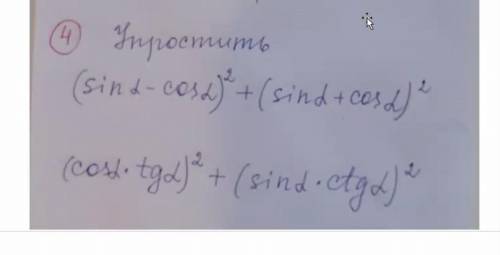 4 Упростить
(sinα-cosα)²+(sinα+cosα)²
(cosα·tgα)²+(sinα·ctgα)²